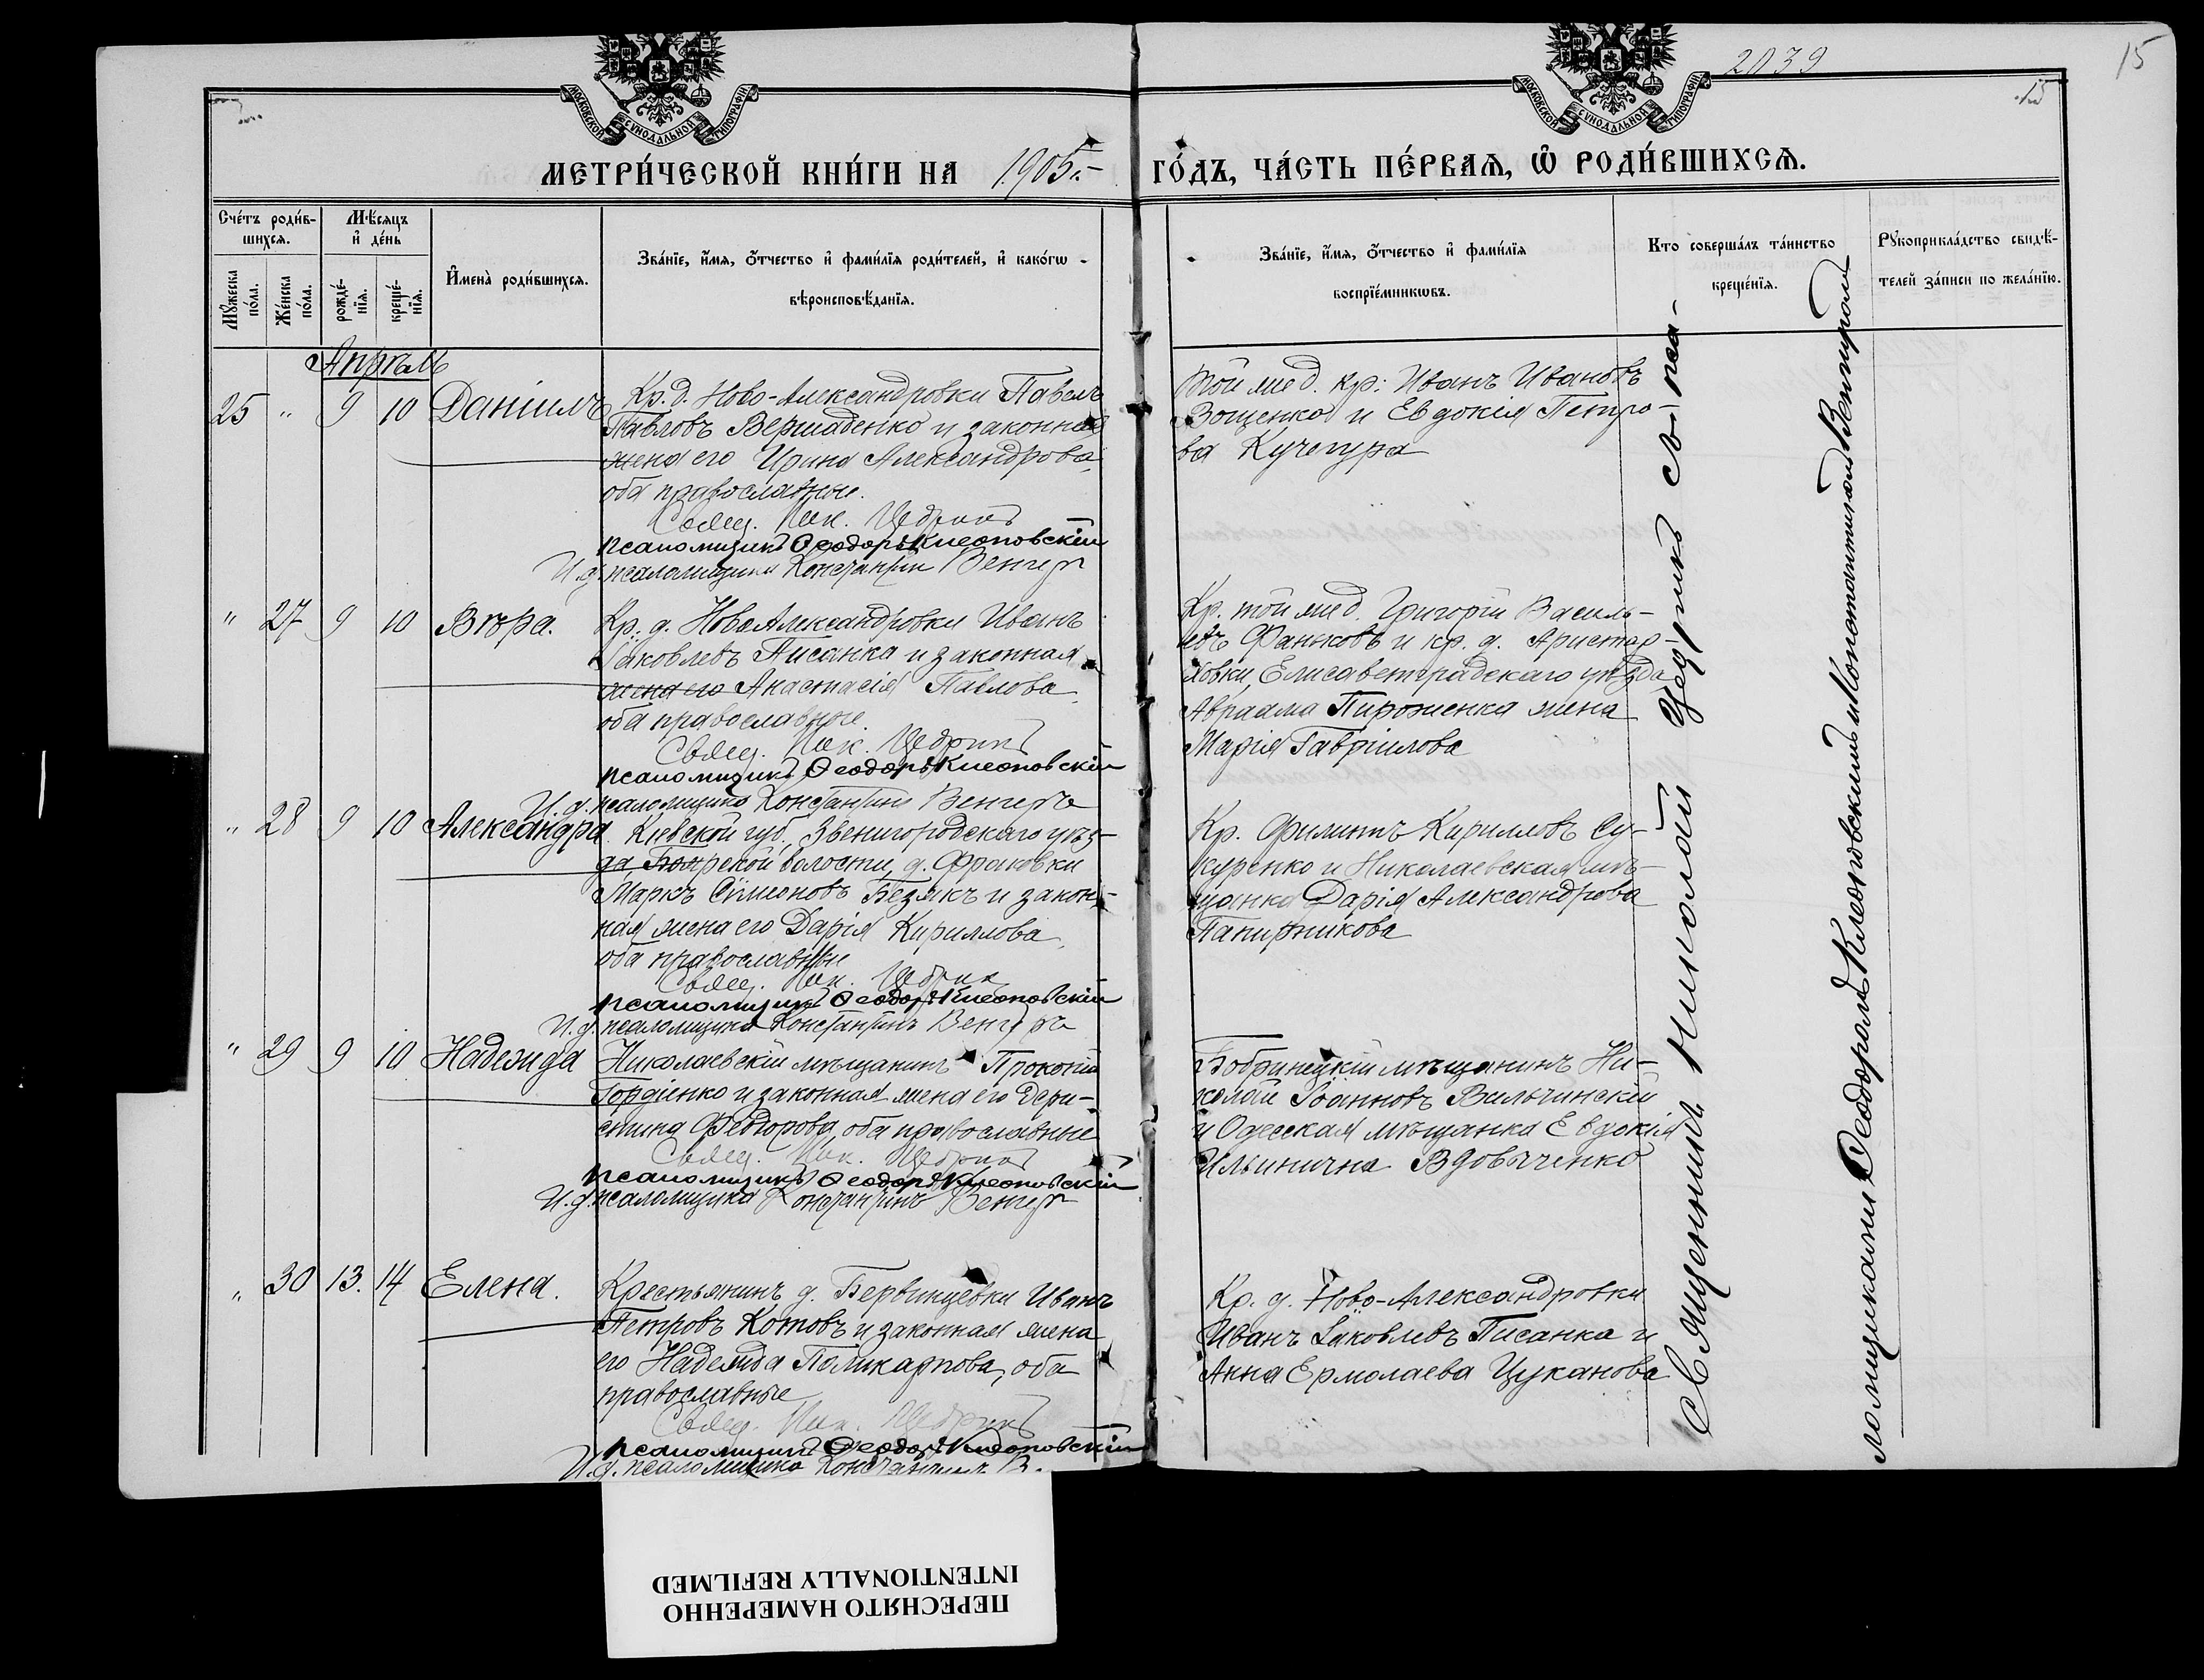 2039
15
15
МОСКОВСКОЙ СУНОДАЛЬНОЙ ТИПОГРАФІИ
МОСКОВСКОЙ СУНОДАЛЬНОЙ ТИПОГРАФІИ
МЕТРИ́ЧЕСКОЙ КНИ́ГИ НА 1905.
ГО́ДЪ, ЧА́СТЬ ПЕ́РВАЯ, Ѡ҆ РОДИ́ВШИХСЯ.
Сче́тъ роди́в-
шихся.
Мꙋ́жеска по́ла.
Же́нска по́ла.
Мѣ́сяцъ
и҆ де́нь
рожде́-
нїя.
креще́-
нїя.
И҆мена̀ роди́вшихся.
Зва́нїе, и҆́мя, ѻ҆́тчество и҆ фами́лїя роди́телей, и҆ како́гѡ
вѣроисповѣ́данїя.
Зва́нїе, и҆́мя, ѻ҆́тчество и҆ фами́лїя
воспрїе́мникѡвъ.
Кто соверша́лъ та́инство
креще́нїя.
Рꙋкоприкла́дство свидѣ́-
телей за́писи по жела́нїю.
Апрѣль
25 " 9 10 Даніилъ
Кр. д. Ново-Александровки Павелъ
Павловъ Вершаденко и законная
жена его Ирина Александрова,
оба православные.
Свящ. Ник. Цедрикъ
псаломщикъ Ѳеодоръ Клеоповскій
И. д. псаломщика Константинъ Венгеръ
той же д. кр: Иванъ Ивановъ
Вощенко и Евдокія Петро-
ва Кучегура
" 27 9 10 Вѣра.
Кр. д. НовоАлександровки Иванъ
Іаковлевъ Писанка и законная
жена его Анастасія Павлова,
оба православные
Свящ. Ник. Цедрикъ
псаломщикъ Ѳеодоръ Клеоповскій
И. д. псаломщика Константинъ Венгеръ
Кр. той же д. Григорій Василь-
евъ Фаньковъ и кр. д. Аристар-
ховки, Елисаветградскаго уѣзда
Авраама Пироженка жена
Марія Гавріилова
" 28 9 10 Александра
Кіевской губ., Звенигородскаго уѣз-
да, Боярской волости, д.
Маркъ Сѵмеоновъ Безякъ и закон-
ная жена его Дарія Кириллова,
оба православные
Свящ. Ник. Цедрикъ
псаломщикъ Ѳеодоръ Клеоповскій
И. д. псаломщика Константинъ Венгеръ
Кр. Филиппъ Кирилловъ Су-
куренко и Николаевская мѣ-
щанка Дарія Александрова
Папирникова
" 29 9 10 Надежда
Николаевскій мѣщанинъ Прокопій
Гордіенко и законная жена его
Ѳеодорова, оба православные
Свящ. Ник. Цедрикъ
псаломщикъ Ѳеодоръ Клеоповскій
И. д. псаломщика Константинъ Венгеръ
Бобринецкій мѣщанинъ Ни-
колай Іоанновъ Вильчинскій
и Одесская мѣщанка Евдокія
Ильинична Вдовиченко
" 30 13. 14 Елена.
Крестьянинъ д. Бервинцевки Иванъ
Петровъ Котовъ и законная жена
его Надежда Поликарпова, оба
православные
Свящ. Ник. Цедрикъ
псаломщикъ Ѳеодоръ Клеоповскій
И. д. псаломщика Константинъ В.
Кр. д. Ново-Александровки
Иванъ Іаковлевъ Писанка и
Анна Ермолаева Цуканова
Священникъ Николай Цедрикъ съ пса-
ломщиками Ѳеодоромъ Клеоповскимъ и Константиномъ Венгеромъ
ПЕРЕСНЯТО НАМЕРЕННО
INTENTIONALLY REFILMED